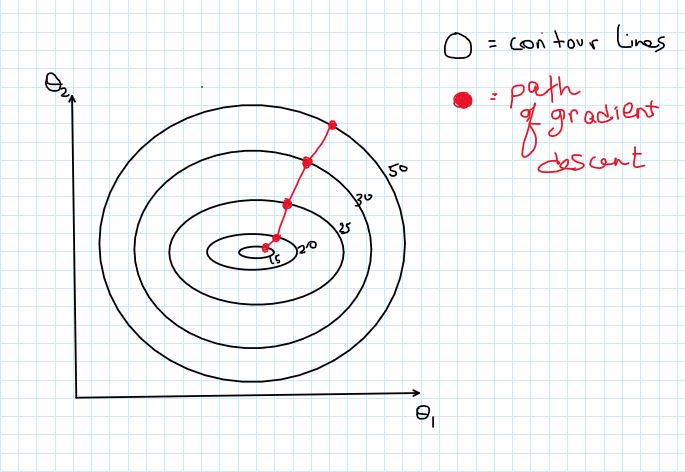 = contour lines
θ₂
= path
of gradient
descent
50
30
25
20
15
θ₁